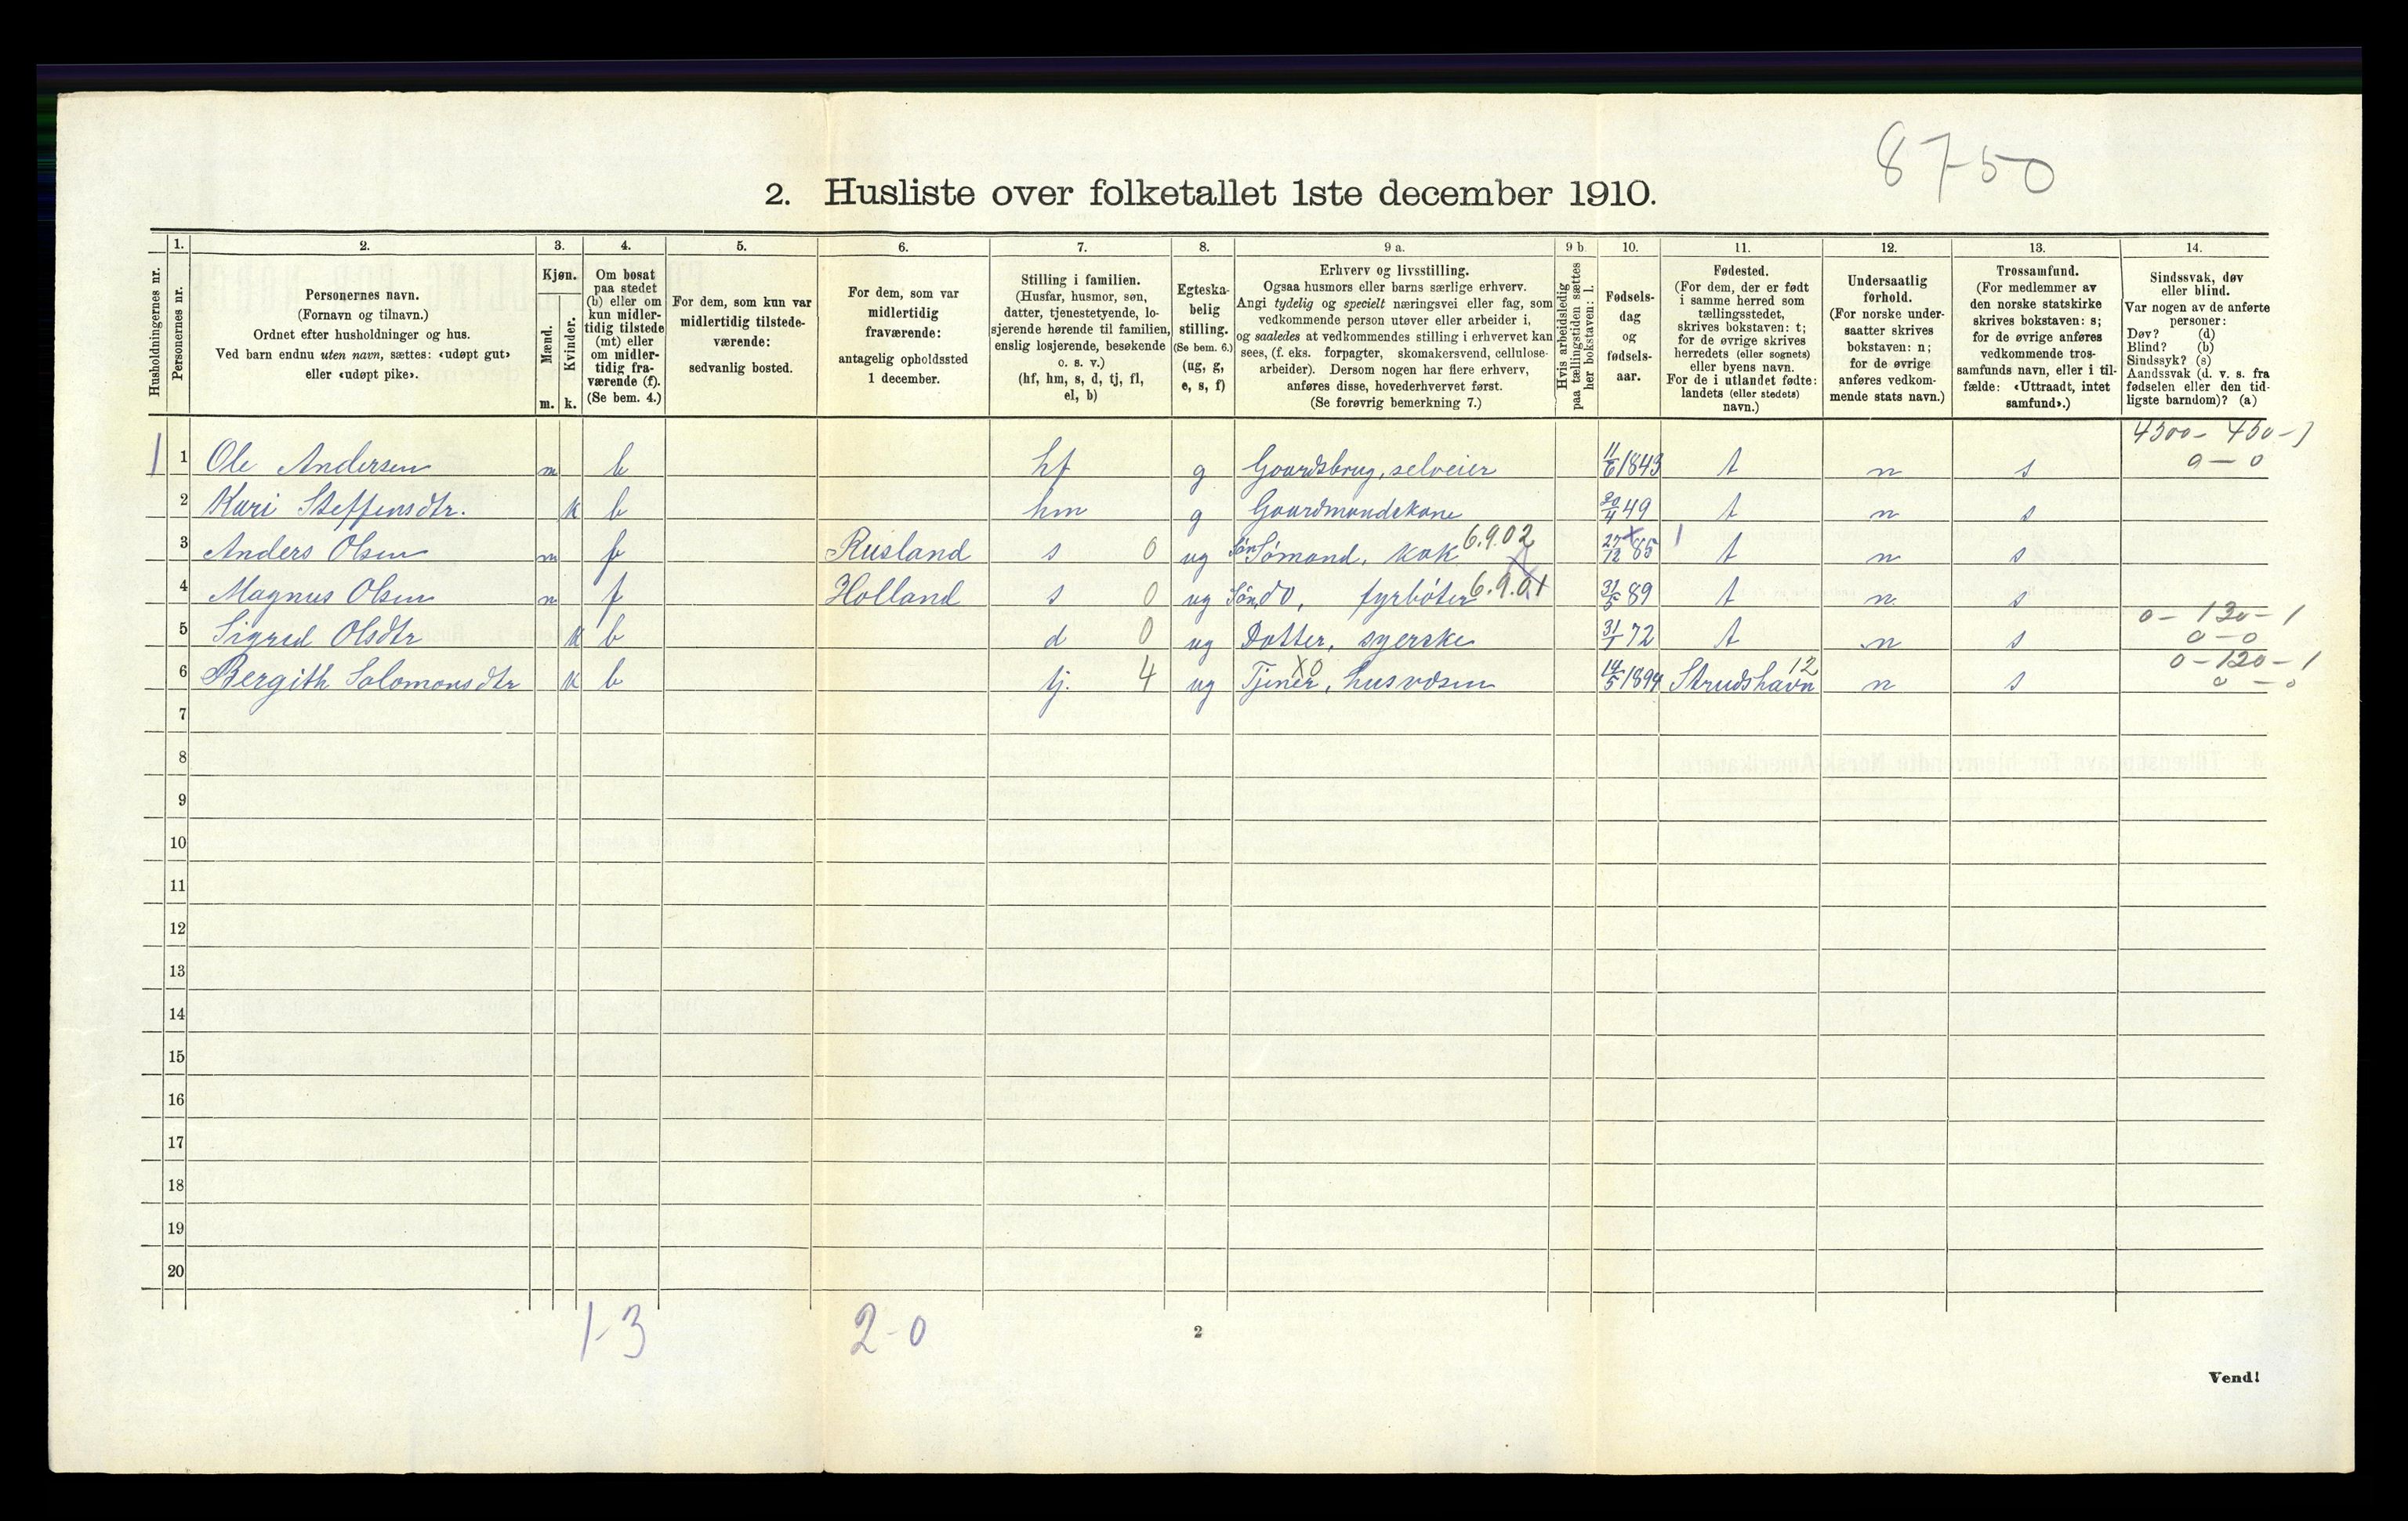 87-50
2. Husliste over folketallet 1ste december 1910.
1. 2. 3. 4. 5. 6. 7. 8. 9 a. 9 b. 10. 11. 12. 13. 14.
Husholdningernes nr.
Personernes nr.
Personernes navn.
(Fornavn og tilnavn.)
Ordnet efter husholdninger og hus.
Ved barn endnu uten navn, sættes: «udøpt gut»
eller «udøpt pike».
Kjøn.
Mænd.
Kvinder.
m. k.
Om bosat
paa stedet
(b) eller om
kun midler-
tidig tilstede
(mt) eller
om midler-
tidig fra-
værende (f).
(Se bem. 4.)
For dem, som kun var
midlertidig tilstede-
værende:
sedvanlig bosted.
For dem, som var
midlertidig
fraværende:
antagelig opholdssted
1 december.
Stilling i familien.
(Husfar, husmor, søn,
datter, tjenestetyende, lo-
sjerende hørende til familien,
enslig losjerende, besøkende
o. s. v.)
(hf, hm, s, d, tj, fl,
el, b)
Egteska-
belig
stilling.
(Se bem. 6.)
(ug, g,
e, s, f)
Erhverv og livsstilling.
Ogsaa husmors eller barns særlige erhverv.
Angi tydelig og specielt næringsvei eller fag, som
vedkommende person utøver eller arbeider i,
og saaledes at vedkommendes stilling i erhvervet kan
sees, (f. eks. forpagter, skomakersvend, cellulose-
arbeider). Dersom nogen har flere erhverv,
anføres disse, hovederhvervet først.
(Se forøvrig bemerkning 7.)
Hvis arbeidsledig
paa tællingstiden sættes
her bokstaven: l.
Fødsels-
dag
og
fødsels-
aar.
Fødested.
(For dem, der er født
i samme herred som
tællingsstedet,
skrives bokstaven: t;
for de øvrige skrives
herredets (eller sognets)
eller byens navn.
For de i utlandet fødte:
landets (eller stedets)
navn.)
Undersaatlig
forhold.
(For norske under-
saatter skrives
bokstaven: n;
for de øvrige
anføres vedkom-
mende stats navn.)
Trossamfund.
(For medlemmer av
den norske statskirke
skrives bokstaven: s;
for de øvrige anføres
vedkommende tros-
samfunds navn, eller i til-
fælde: «Uttraadt, intet
samfund».)
Sindssvak, døv
eller blind.
Var nogen av de anførte
personer:
Døv? (d)
Blind? (b)
Sindssyk? (s)
Aandssvak (d. v. s. fra
fødselen eller den tid-
ligste barndom)? (a)
4500 - 450 - 1
1 1 Ole Andersen m b hf g Gaardsbrug, selveier 11/6 1843 t n s 0 - 0
2 Kari Steffensdtr. k b hm g Gaardmandskone 20/4 49 t n s
3 Anders Olsen m f Rusland s 0 ug Søn Sømand, kok 6.9.02 27/12 85 t n s
4 Magnus Olsen m f Holland s 0 ug Søn, do, fyrbøter 6.9.01 31/5 89 t n s
0 - 130 - 1
5 Sigrid Olsdtr k b d 0 ug Datter, syerske 31/1 72 t n s 0 - 0
0 - 120 - 1
6 Bergith Solomonsdtr k b tj. 4 ug Tjener, husvæsen X0 14/5 1894 Strudshavn 12 n s 0 - 0
7
8
9
10
11
12
13
14
15
16
17
18
19
20
1-3 2-0
2
Vend!